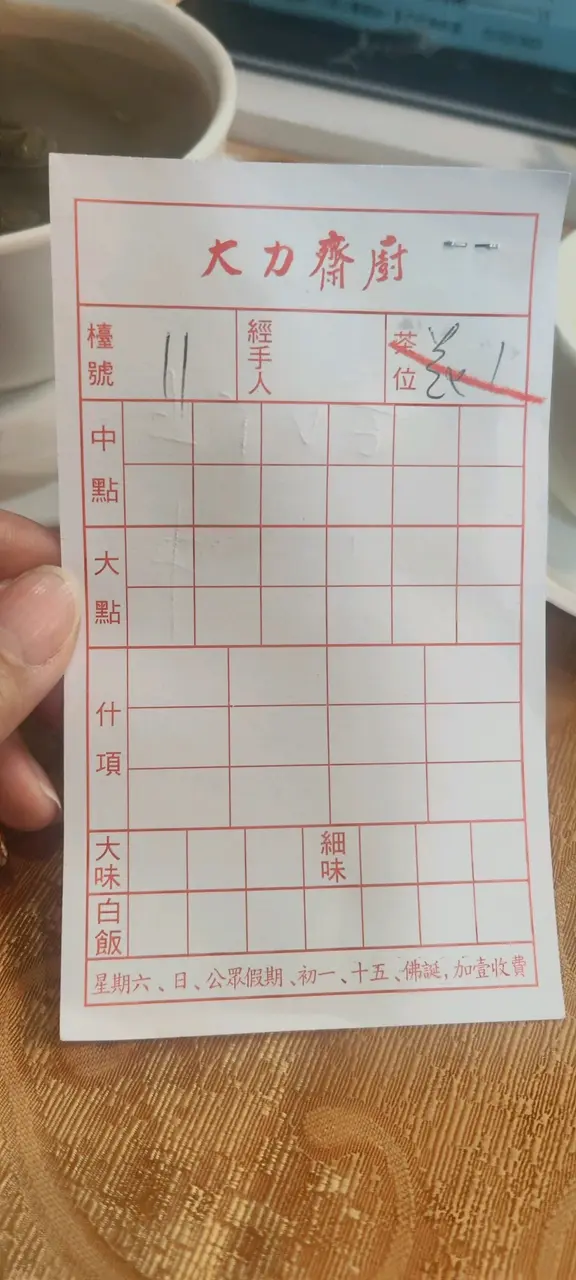 大力齋廚
檯號 11 經手人 茶位 1
中點
大點
什項
大味 細味
白飯
星期六、日、公眾假期、初一、十五、佛誕,加壹收費